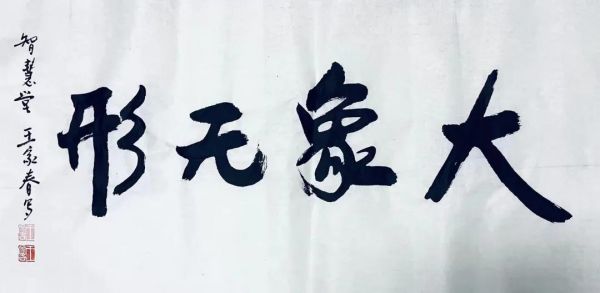 大象无形
智慧堂王家春写